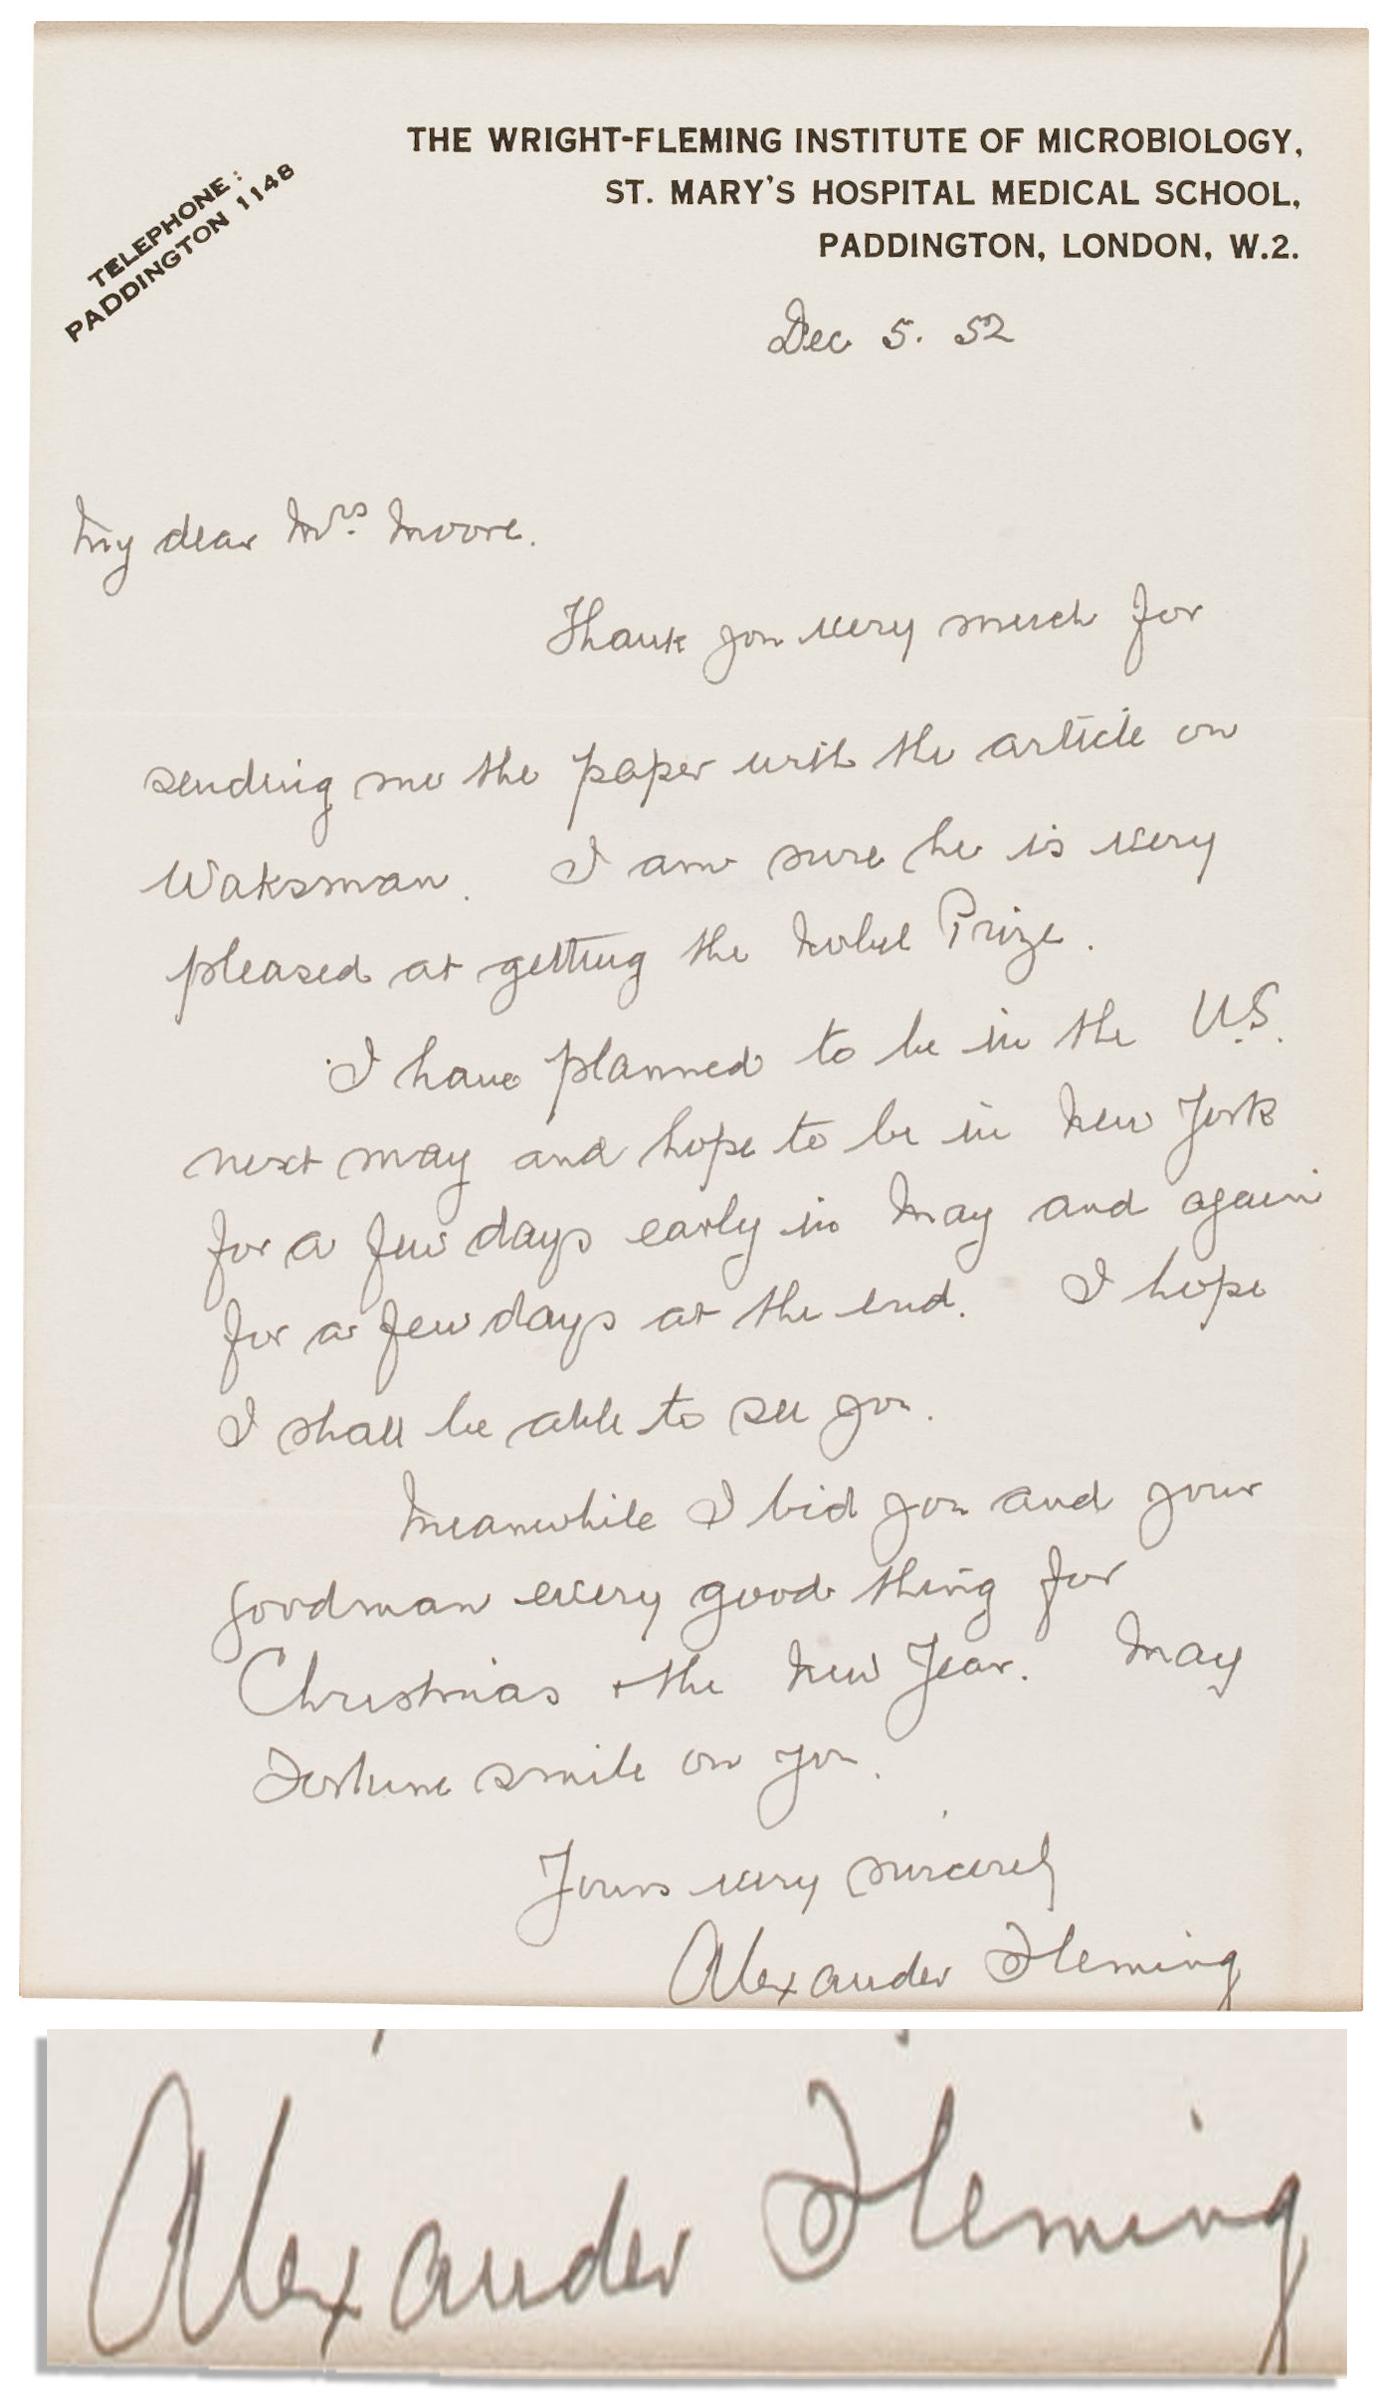 TELEPHONE:
PADDINGTON 1148
THE WRIGHT-FLEMING INSTITUTE OF MICROBIOLOGY,
ST. MARY'S HOSPITAL MEDICAL SCHOOL,
PADDINGTON, LONDON, W.2.
Dec 5. 52
My dear Mrs. Moore.
Thank you very much for
sending me the paper with the article on
Waksman. I am sure he is very
pleased at getting the Nobel Prize.
I have planned to be in the U.S.
next may and hope to be in New York
for a few days early in May and again
for a few days at the end. I hope
I shall be able to see you.
Meanwhile I bid you and your
goodman every good thing for
Christmas + the New Year. May
Fortune smile on you.
Yours very sincerely
Alexander Fleming
Alexander Fleming